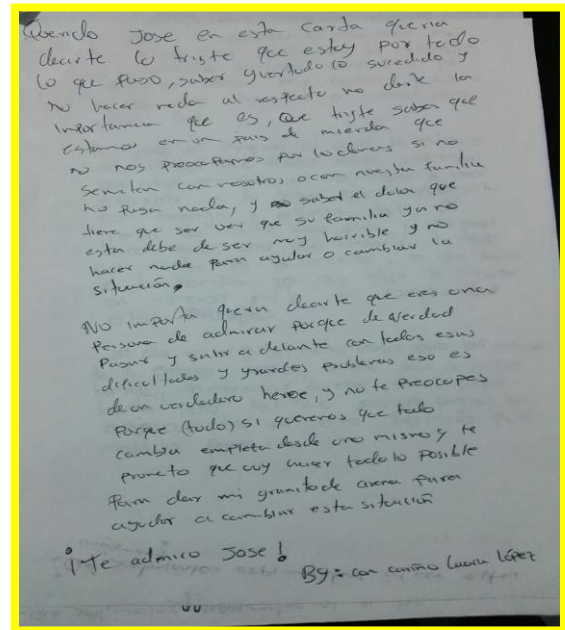 Querido Jose en esta Carta queria
decirte lo triste que estoy por todo
lo que paso, saber y ver todo lo sucedido y
no hacer nada al respecto no darle la
importancia que es, Que triste saber que
estamos en un pais de mierda que
no nos preocupamos por los demas si no
se meten con nosotros, o con nuestra familia
no Pasa nada, y saber el dolor que
tiene que ser ver que su familia ya no
esta debe de ser muy horrible y no
hacer nada para ayudar o cambiar la
situación.
NO importa queria decirte que eres una
Persona de admirar Porque de verdad
Pasar y salir a delante con todas esas
dificultades y grandes problemas eso es
de un verdadero heroe, y no te Preocupes
Porque (todo) si queremos que todo
cambia empieza desde uno mismo y te
prometo que voy hacer todo lo posible
Para dar mi granito de arena para
ayudar a cambiar esta situación
¡Te admiro Jose!
By: con cariño Luisa López